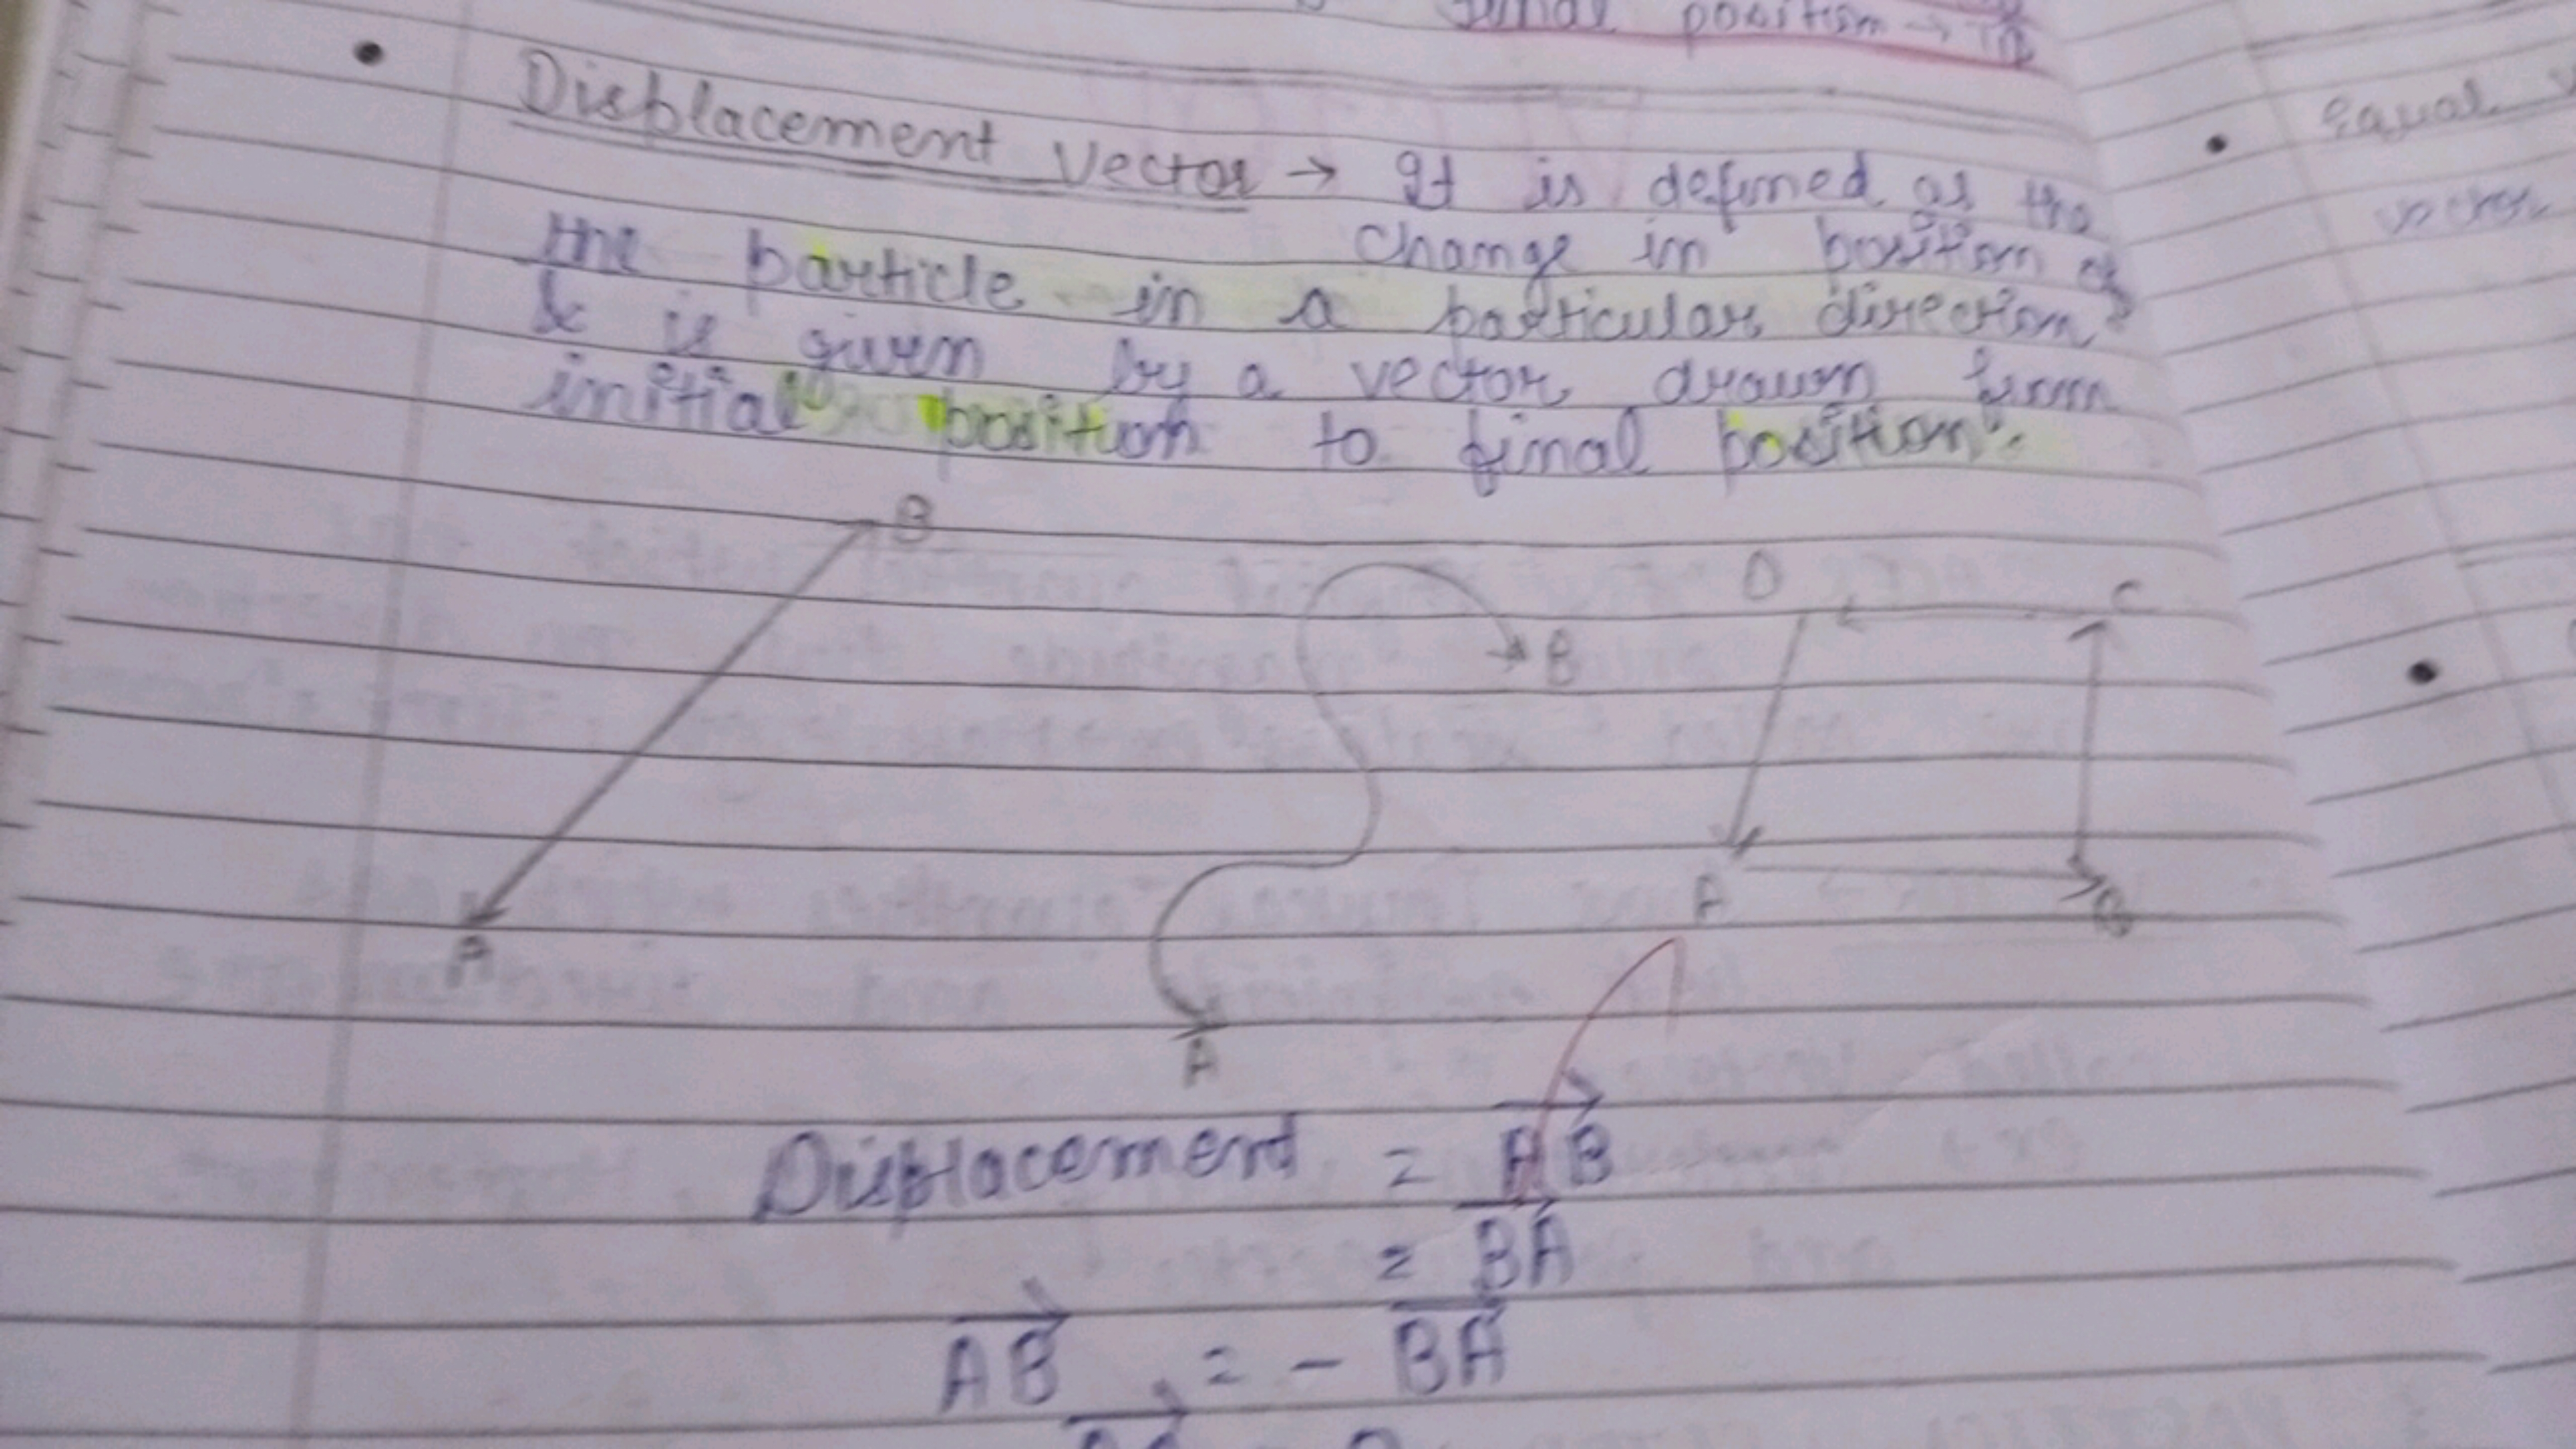 final position →
• Displacement Vector → It is defined as the
change in position of
the particle in a particular direction
& is given by a vector drawn from
initial position to final position".
B
D C
B
A B
A
A
Displacement = AB
= BA
AB = - BA
• Equal
vector
•